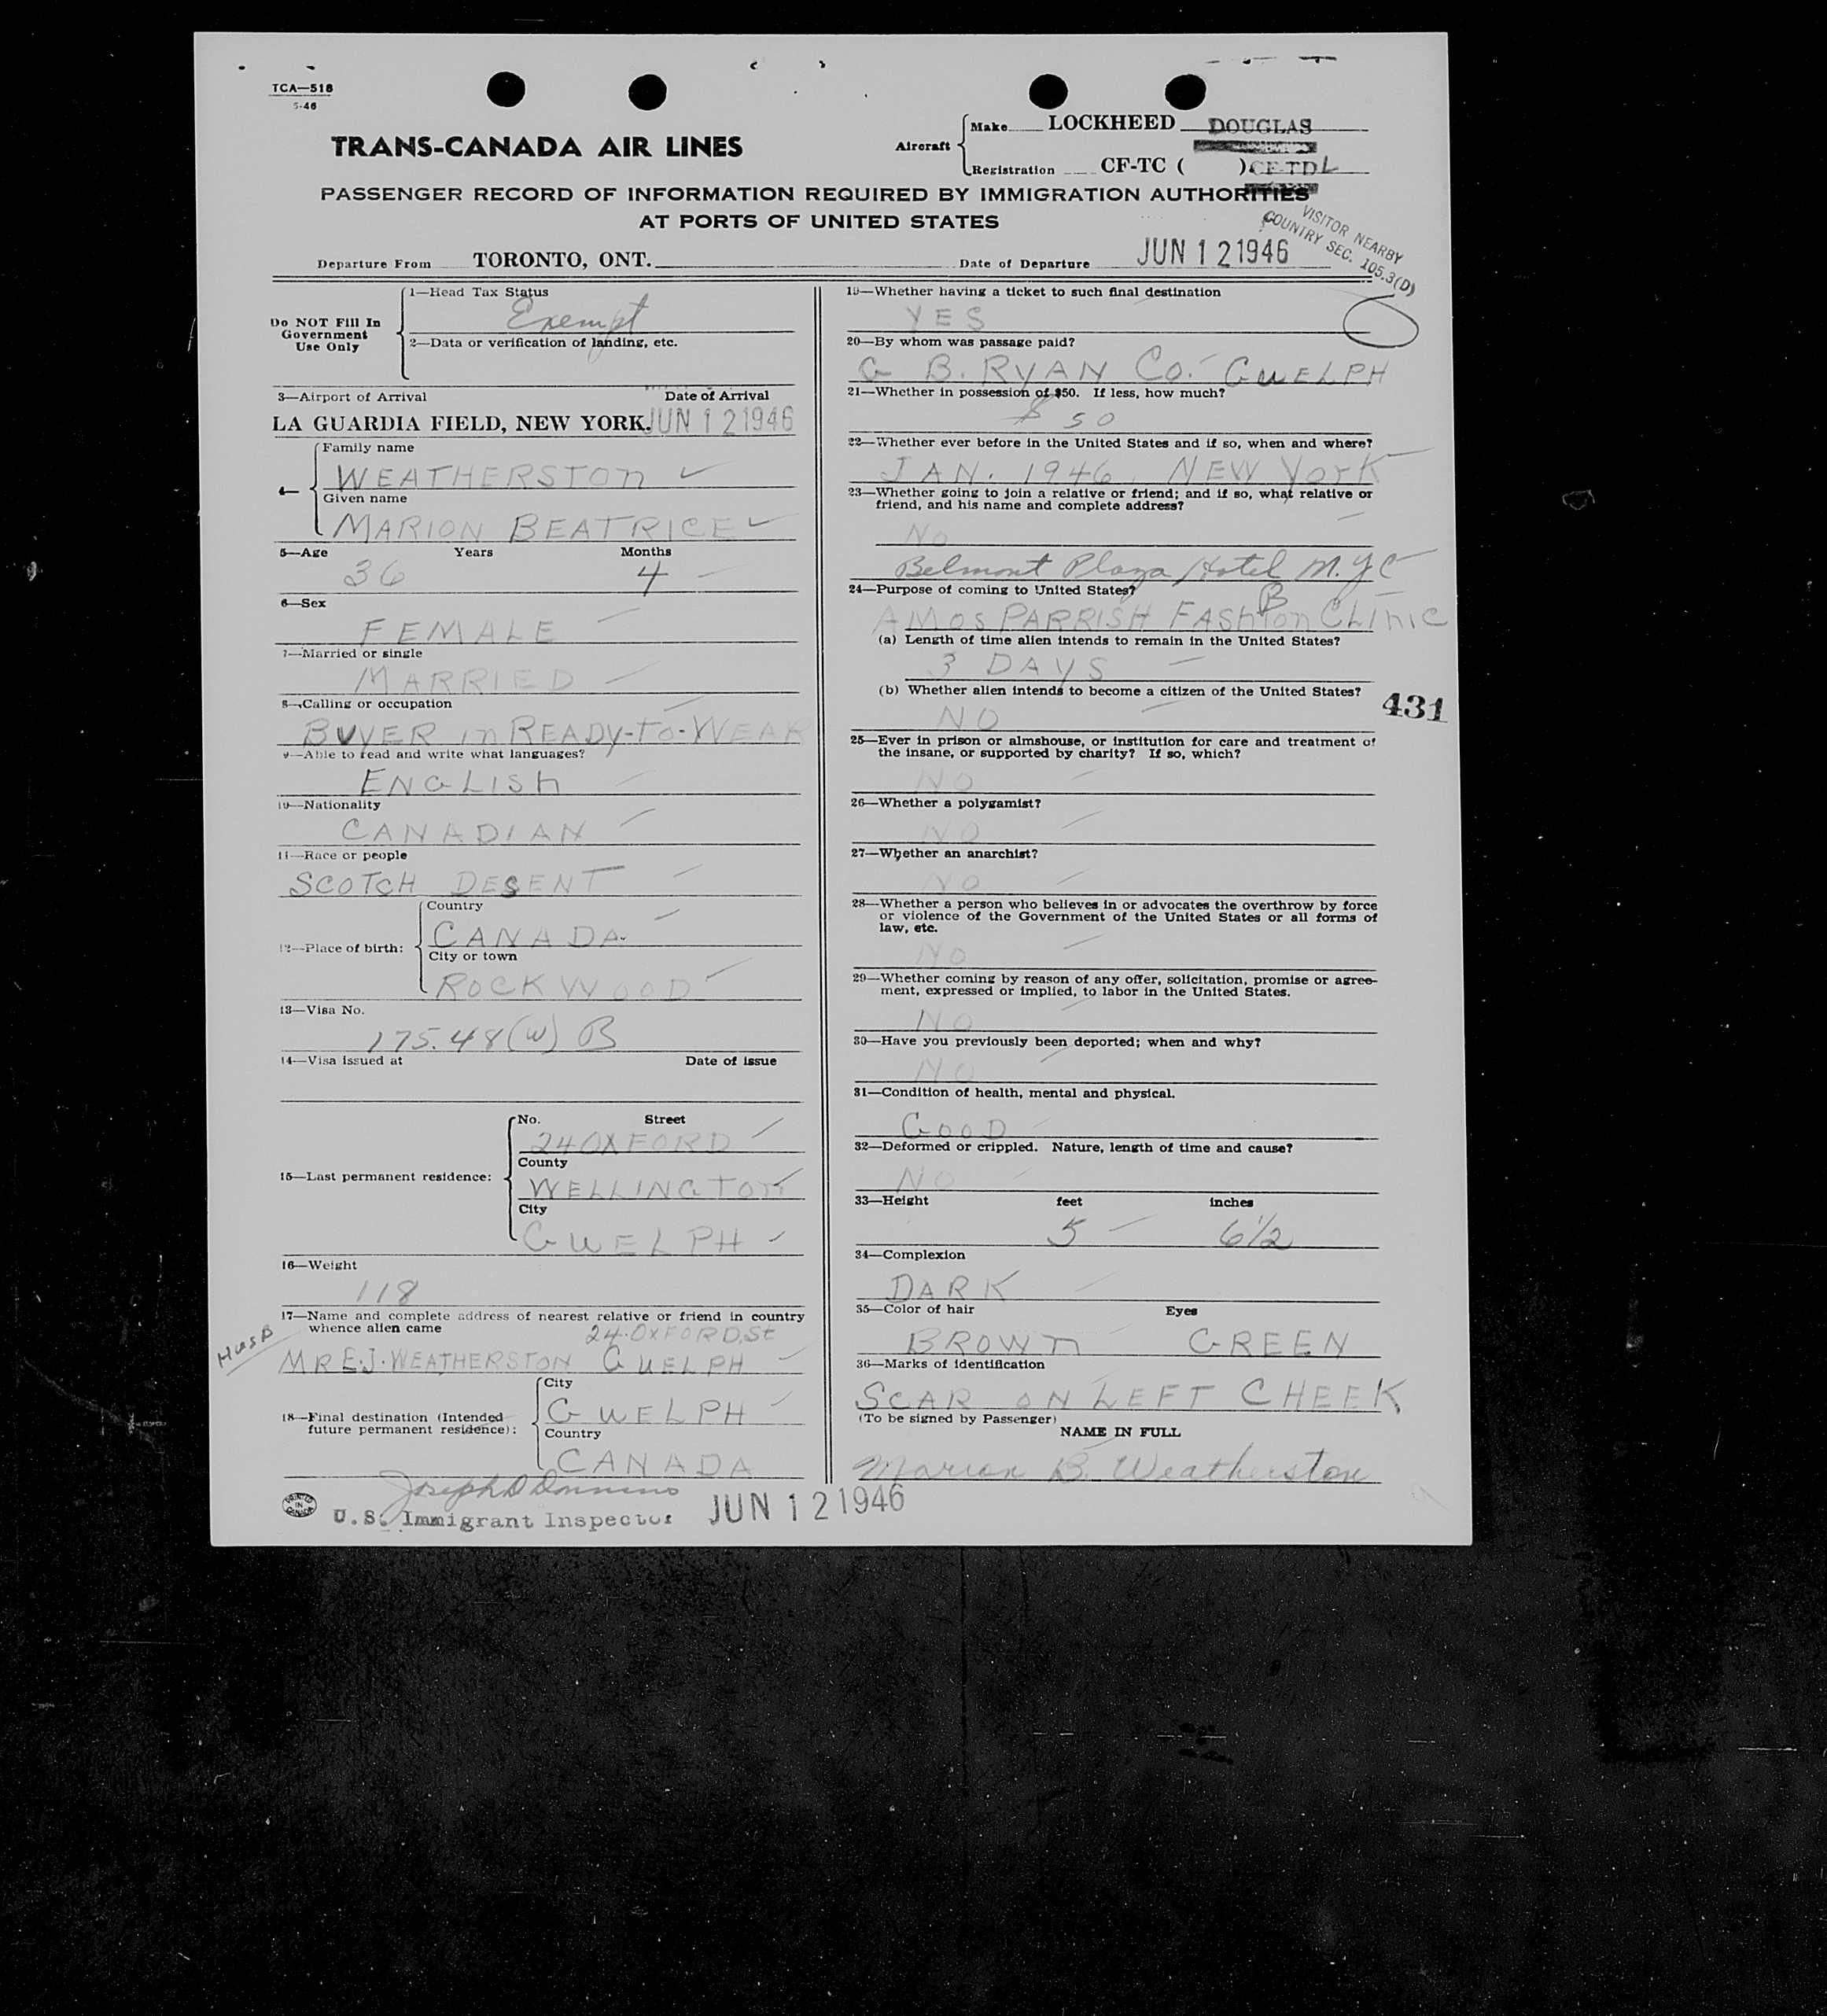 TCA—518
5-46
TRANS-CANADA AIR LINES
Aircraft
Make LOCKHEED DOUGLAS
Registration CF-TC ( ) CF-TDL
PASSENGER RECORD OF INFORMATION REQUIRED BY IMMIGRATION AUTHORITIES
AT PORTS OF UNITED STATES
VISITOR NEARBY
COUNTRY SEC. 105.3(D)
Departure From TORONTO, ONT. Date of Departure JUN 12 1946
Do NOT Fill In
Government
Use Only
1—Head Tax Status
Exempt
2—Data or verification of landing, etc.
3—Airport of Arrival Date of Arrival
LA GUARDIA FIELD, NEW YORK. JUN 12 1946
4—
Family name
WEATHERSTON
Given name
MARION BEATRICE
5—Age Years Months
36 4
6—Sex
FEMALE
7—Married or single
MARRIED
8—Calling or occupation
BUYER in READY-TO-WEAR
9—Able to read and write what languages?
ENGLISH
10—Nationality
CANADIAN
11—Race or people
SCOTCH DESENT
12—Place of birth:
Country
CANADA
City or town
ROCKWOOD
13—Visa No.
175.48(W) B
14—Visa issued at Date of issue
15—Last permanent residence:
No. Street
24 OXFORD
County
WELLINGTON
City
GUELPH
16—Weight
118
17—Name and complete address of nearest relative or friend in country
whence alien came
24. OXFORD. St
HUSB
MR E.J. WEATHERSTON GUELPH
18—Final destination (Intended
future permanent residence):
City
GUELPH
Country
CANADA
19—Whether having a ticket to such final destination
YES
20—By whom was passage paid?
G B. RYAN Co. GUELPH
21—Whether in possession of $50. If less, how much?
$ 50
22—Whether ever before in the United States and if so, when and where?
JAN. 1946, NEW YORK
23—Whether going to join a relative or friend; and if so, what relative or
friend, and his name and complete address?
No
Belmont Plaza Hotel N.Y.C
24—Purpose of coming to United States?
B
AMOS PARRISH FASHION CLINIC
(a) Length of time alien intends to remain in the United States?
3 DAYS
(b) Whether alien intends to become a citizen of the United States?
NO
431
25—Ever in prison or almshouse, or institution for care and treatment of
the insane, or supported by charity? If so, which?
NO
26—Whether a polygamist?
NO
27—Whether an anarchist?
NO
28—Whether a person who believes in or advocates the overthrow by force
or violence of the Government of the United States or all forms of
law, etc.
NO
29—Whether coming by reason of any offer, solicitation, promise or agree-
ment, expressed or implied, to labor in the United States.
NO
30—Have you previously been deported; when and why?
NO
31—Condition of health, mental and physical.
GOOD
32—Deformed or crippled. Nature, length of time and cause?
NO
33—Height feet inches
5 6 1/2
34—Complexion
DARK
35—Color of hair Eyes
BROWN GREEN
36—Marks of identification
SCAR ON LEFT CHEEK
(To be signed by Passenger)
NAME IN FULL
Marion B. Weatherston
PRINTED IN CANADA
Joseph D
U.S. Immigrant Inspector JUN 12 1946